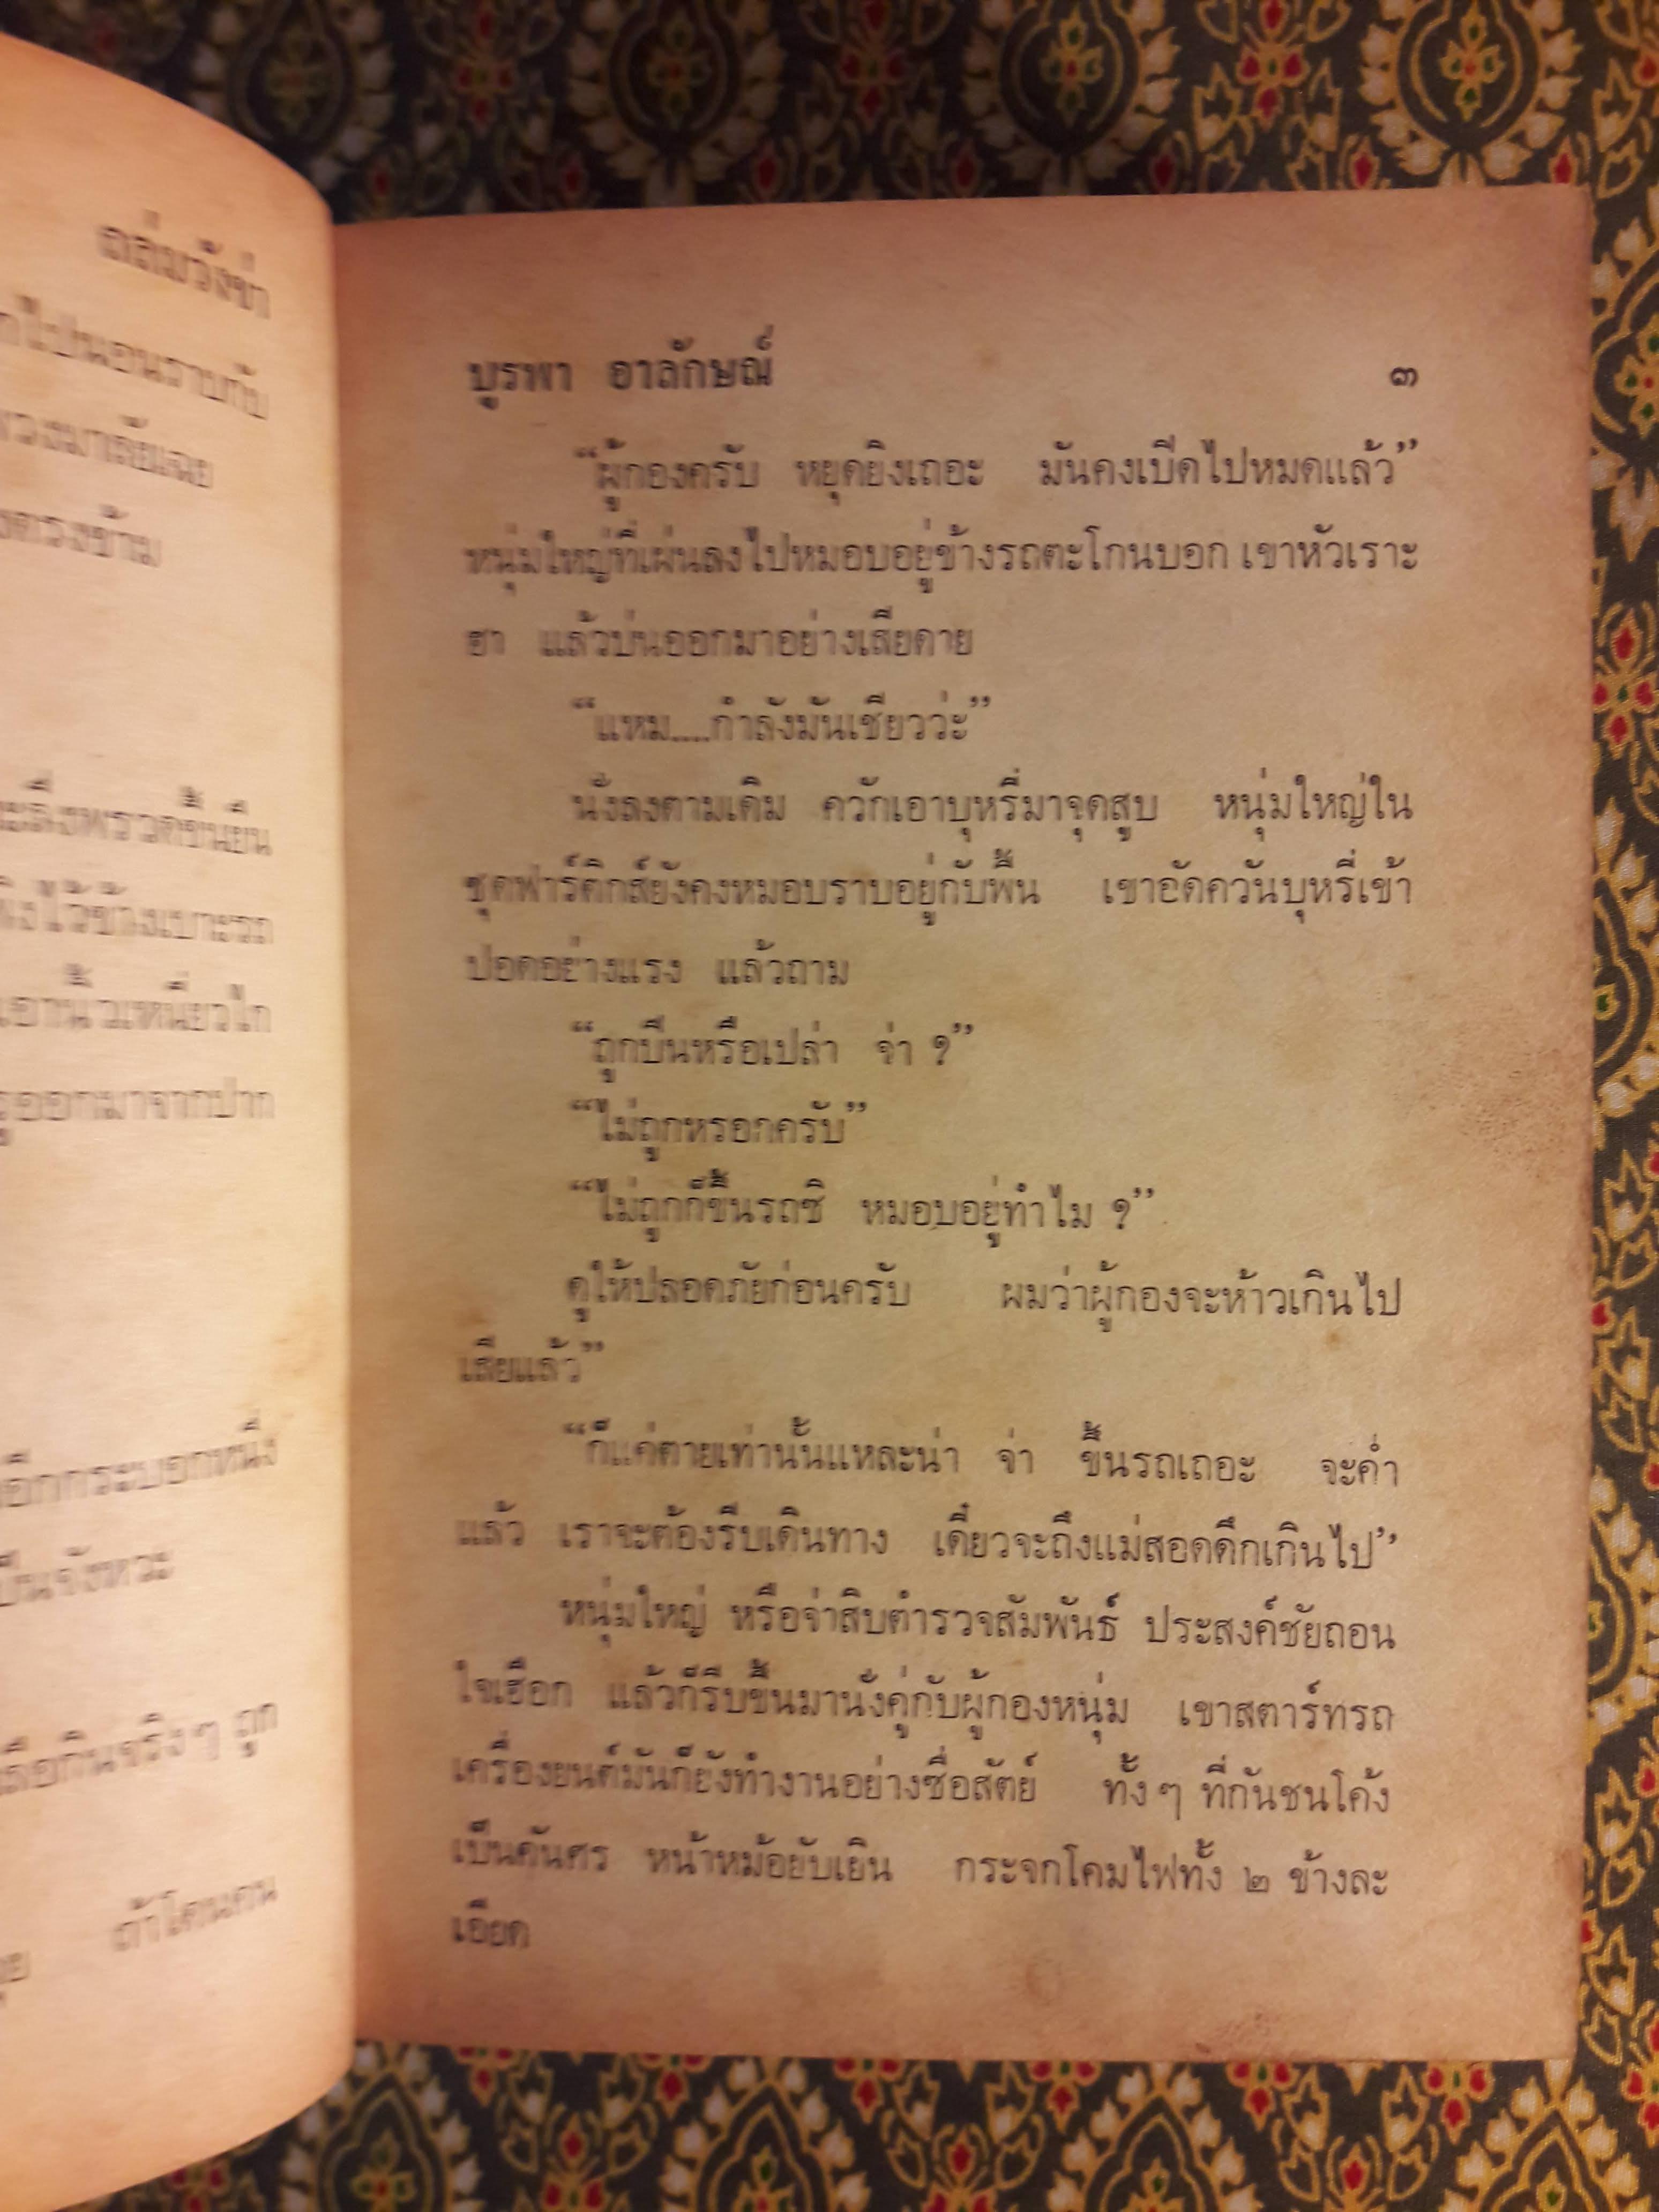 ถล่มวังข่า
ไปนอนราบกับ
พวงมาลัยเฉย
ตรงข้าม
ลึงพรวดขึ้นยืน
ไว้ข้างเบาะรถ
เอานิ้วเหนี่ยวไก
ออกมาจากปาก
อีกกระบอกหนึ่ง
เป็นจังหวะ
เลือกินจริงๆ ถูก
ถ้าโดนคน
บูรพา อาลักษณ์ ๓
“ผู้กองครับ หยุดยิงเถอะ มันคงเปิดไปหมดแล้ว”
หนุ่มใหญ่ที่เผ่นลงไปหมอบอยู่ข้างรถตะโกนบอก เขาหัวเราะ
ฮา แล้วบ่นออกมาอย่างเสียดาย
“แหม....กำลังมันเชียวว่ะ”
นั่งลงตามเดิม ควักเอาบุหรี่มาจุดสูบ หนุ่มใหญ่ใน
ชุดฟาร์ติกส์ยังคงหมอบราบอยู่กับพื้น เขาอัดควันบุหรี่เข้า
ปอดอย่างแรง แล้วถาม
“ถูกปืนหรือเปล่า จ่า ?”
“ไม่ถูกหรอกครับ”
“ไม่ถูกก็ขึ้นรถซิ หมอบอยู่ทำไม ?”
ดูให้ปลอดภัยก่อนครับ ผมว่าผู้กองจะห้าวเกินไป
เสียแล้ว”
“ก็แค่ตายเท่านั้นแหละน่า จ่า ขึ้นรถเถอะ จะค่ำ
แล้ว เราจะต้องรีบเดินทาง เดี๋ยวจะถึงแม่สอดดึกเกินไป”
หนุ่มใหญ่ หรือจ่าสิบตำรวจสัมพันธ์ ประสงค์ชัยถอน
ใจเฮือก แล้วก็รีบขึ้นมานั่งคู่กับผู้กองหนุ่ม เขาสตาร์ทรถ
เครื่องยนต์มันก็ยังทำงานอย่างซื่อสัตย์ ทั้งๆ ที่กันชนโค้ง
เป็นคันศร หน้าหม้อยับเยิน กระจกโคมไฟทั้ง ๒ ข้างละ
เอียด